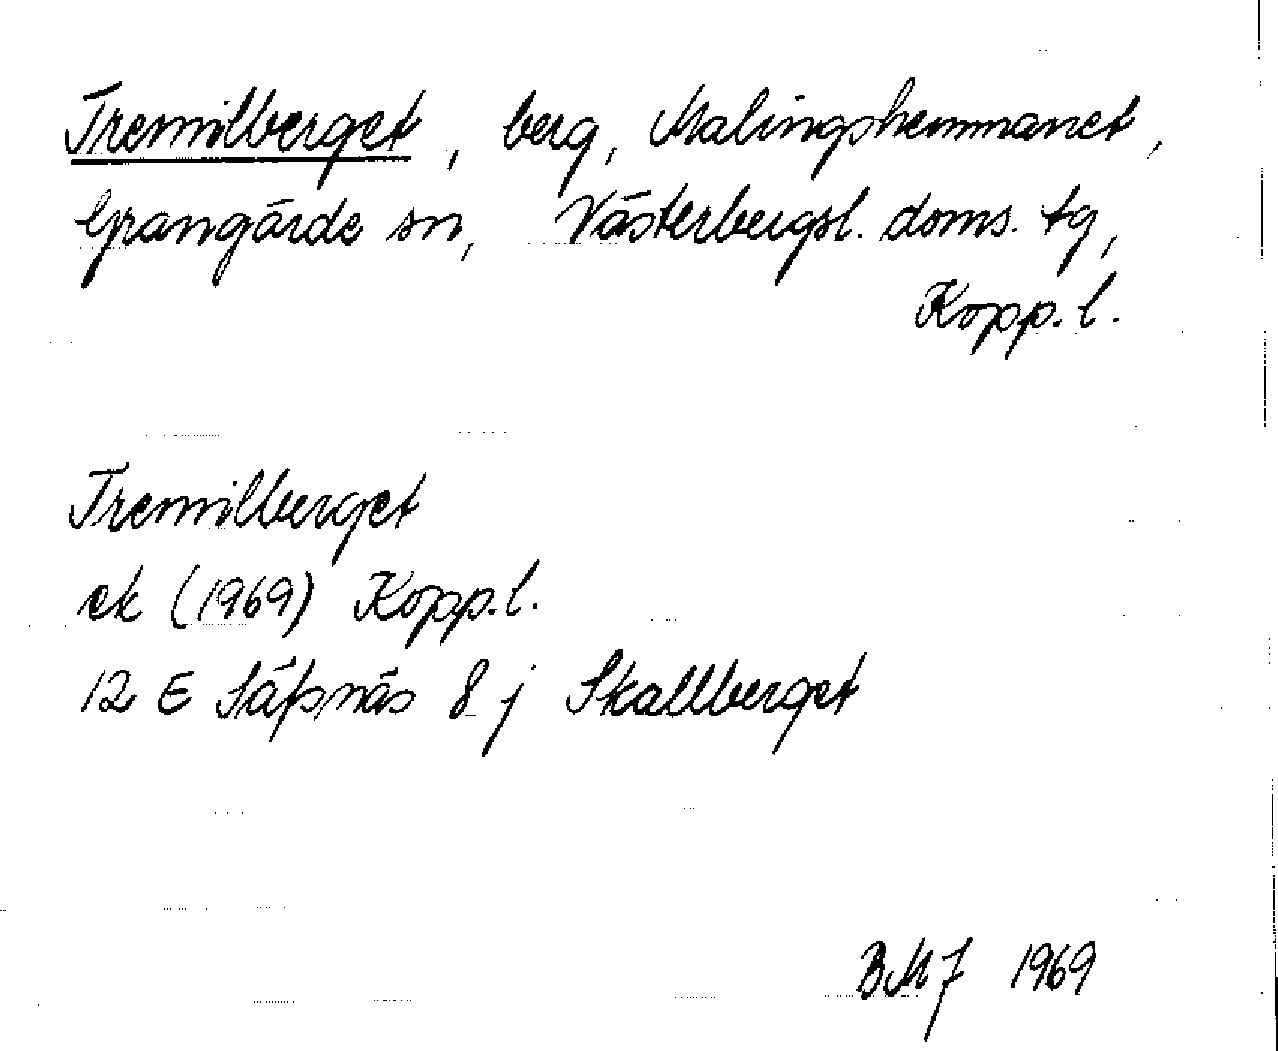 Tremilberget, berg, Malingshemmanet,
Grangärde sn, Västerbergsl. doms. tg,
Kopp. l.
Tremilberget
ek (1969) Kopp. l.
12 E Säfsnäs 8 j Skallberget
BMJ 1969